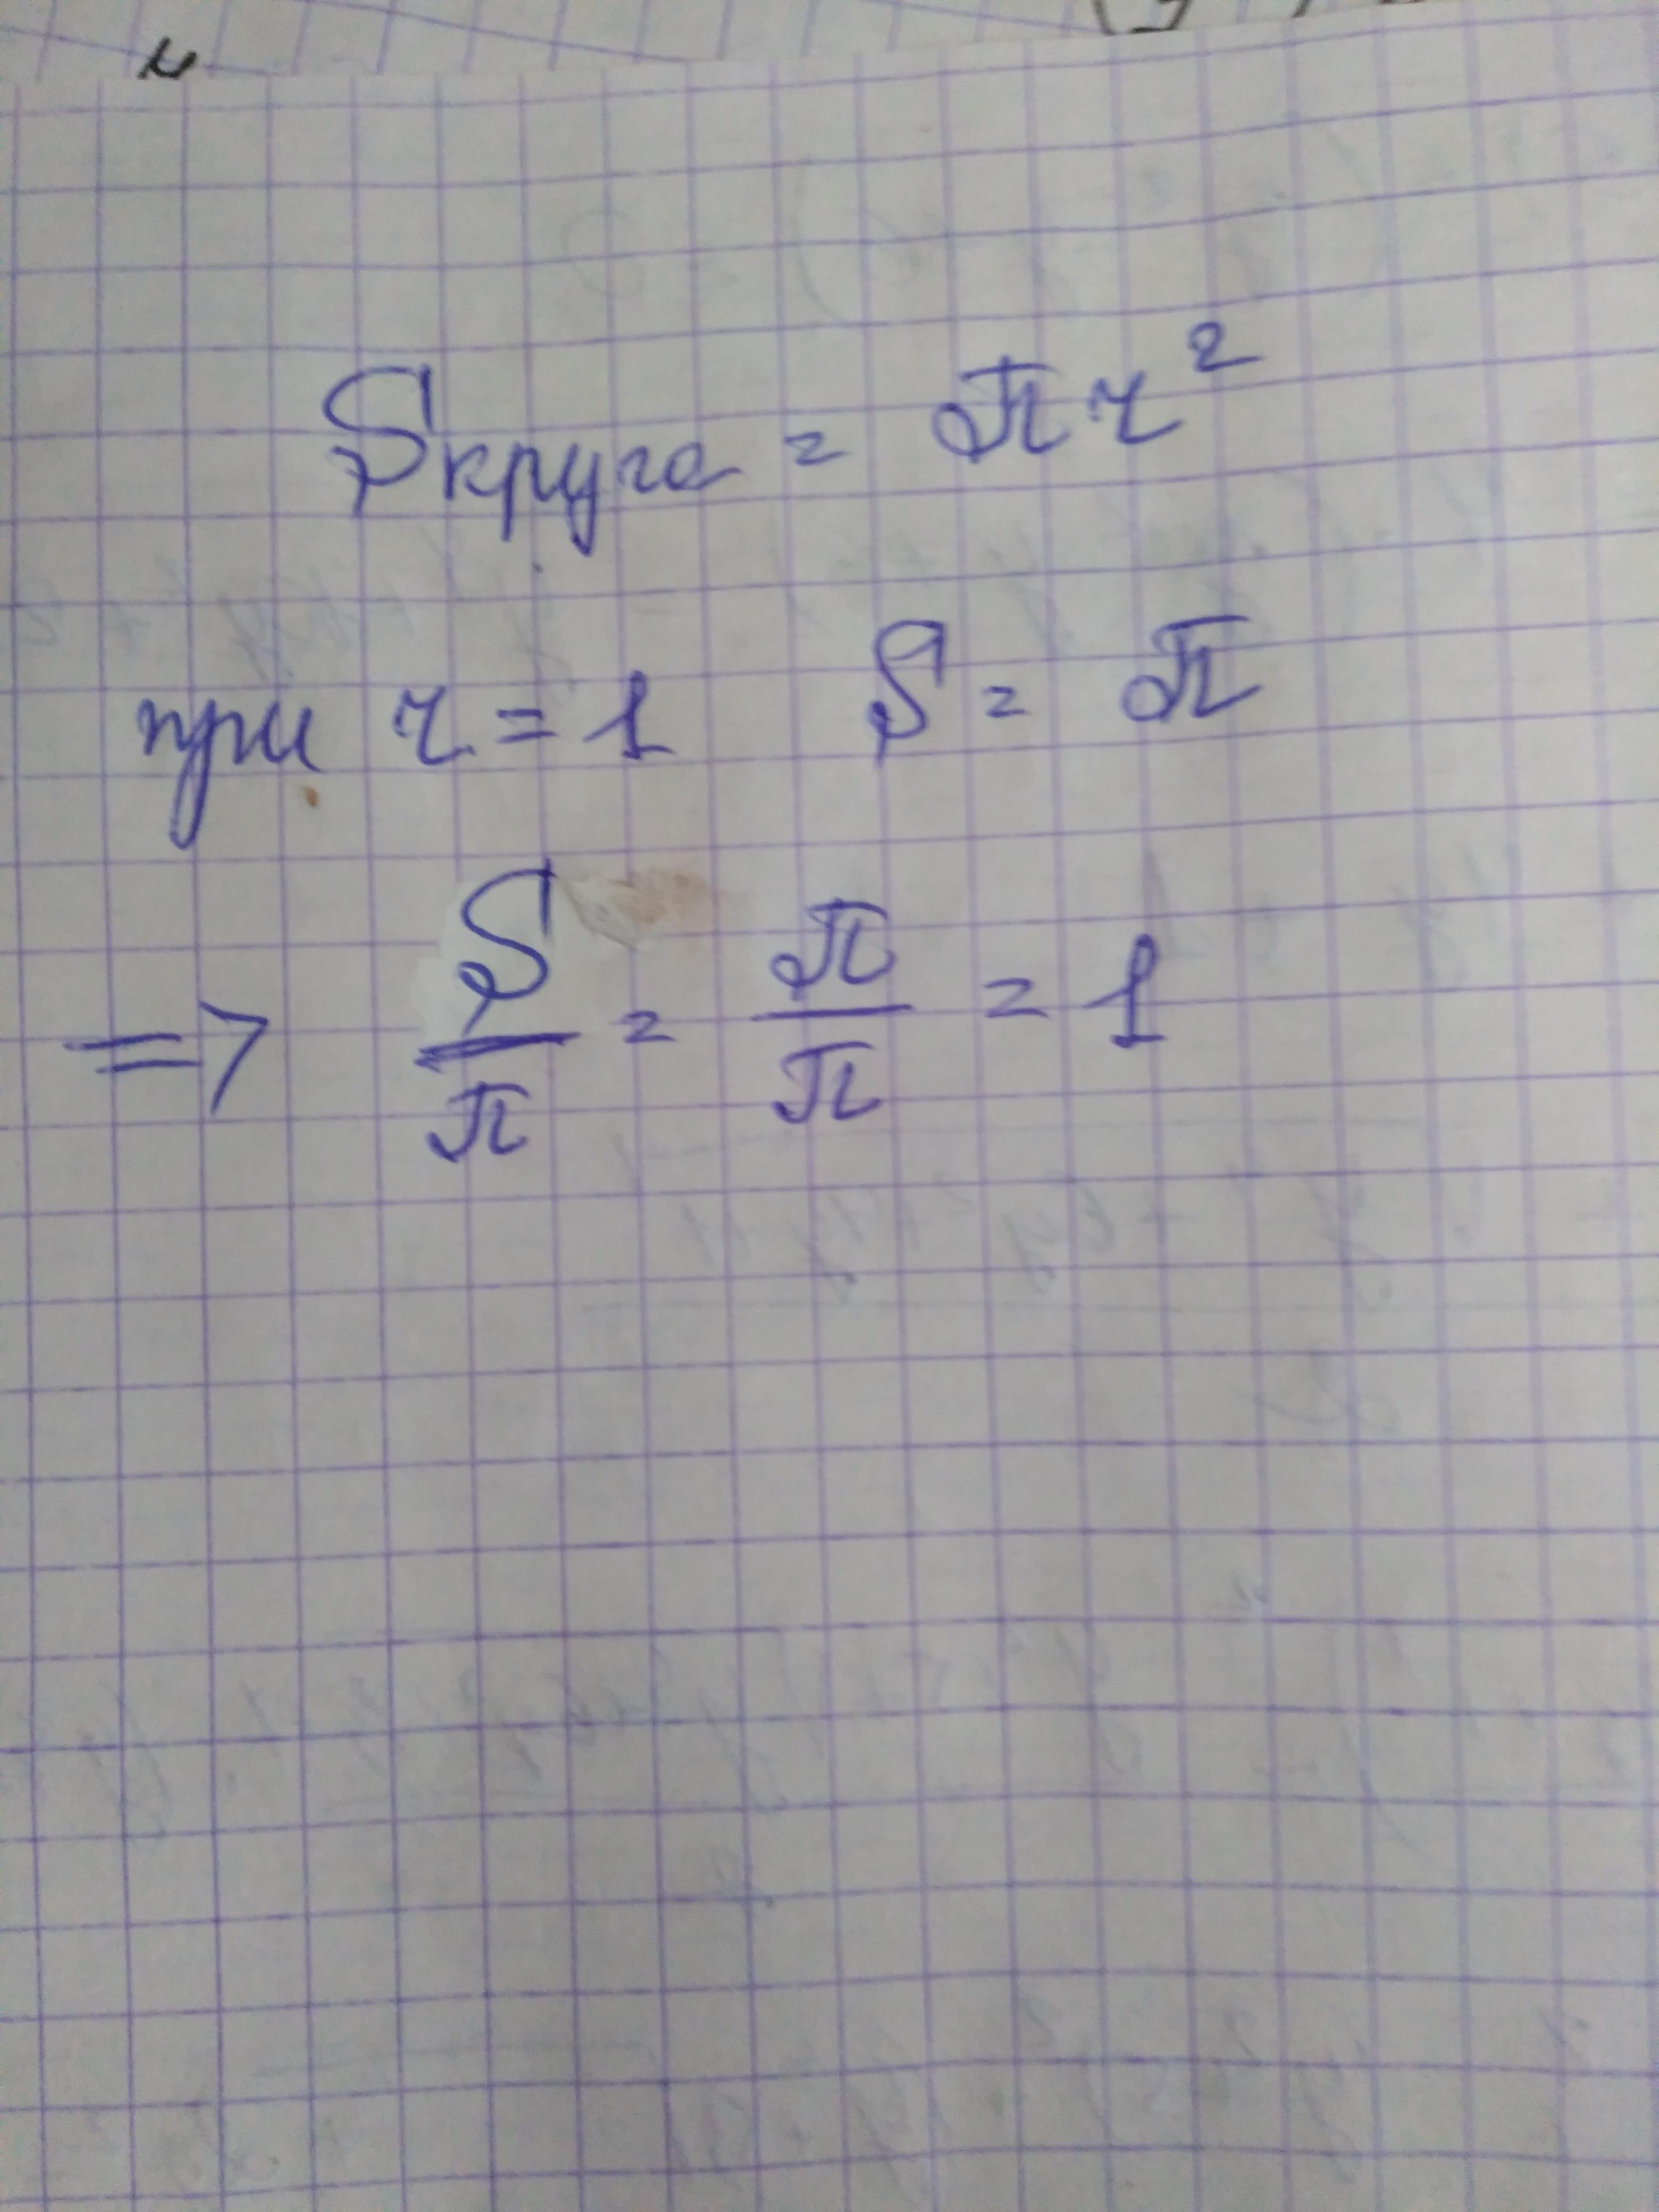 Sкруга = πr²
при r = 1 S = π
=> S/π = π/π = 1